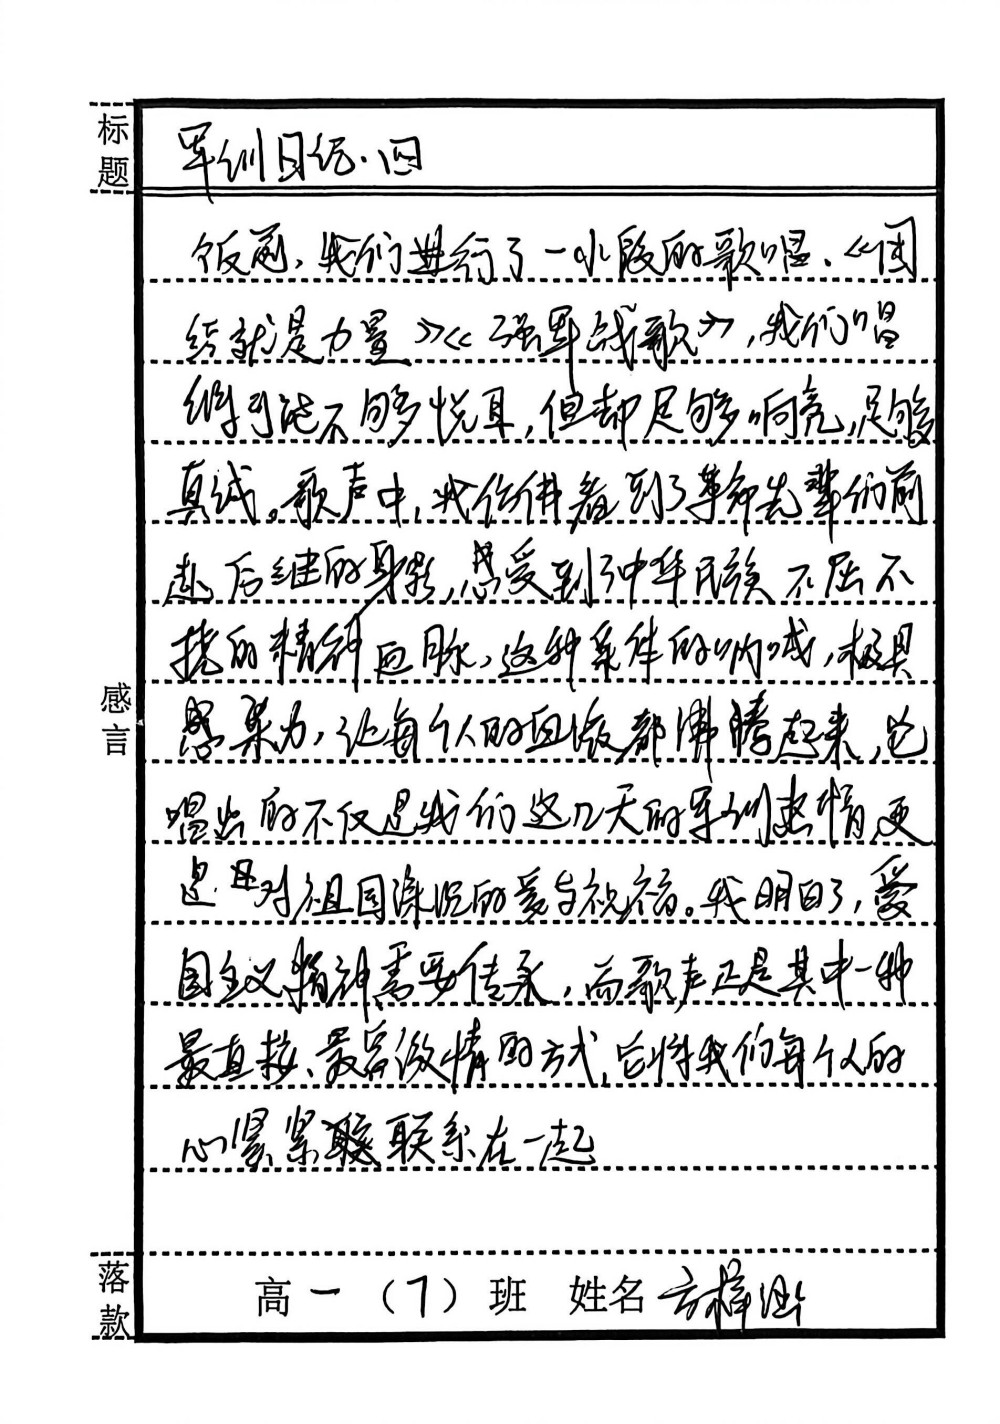 标题
军训日记·四
饭前，我们进行了一小段的歌唱.《团
结就是力量》《强军战歌》，我们唱
得可能不够悦耳，但却足够响亮，足够
真诚。歌声中，我仿佛看到了革命先辈们前
赴后继的身影，感受到了中华民族不屈不
挠的精神血脉，这种集体的呐喊，极具
感染力，让每个人的血液都沸腾起来，它
唱出的不仅是我们这几天的军训热情更
是对祖国深沉的爱与祝福。我明白了，爱
国主义精神需要传承，而歌声正是其中一种
最直接、最容激情的方式，它将我们每个人的
心紧紧联系在一起
感言
落款
高一（7）班 姓名 方梓